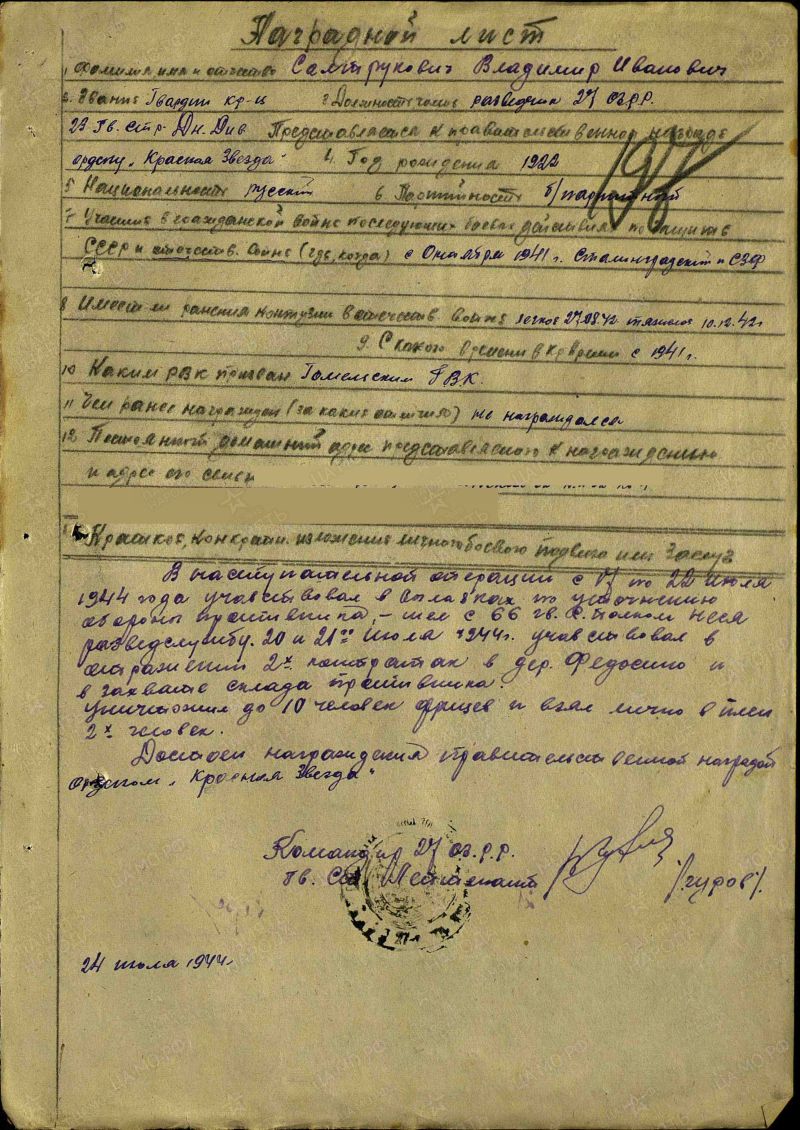 Наградной лист
1. Фамилия, имя и отчество Салтрукович Владимир Иванович
2. Звание Гвардии кр-ц 3. Должность, часть разведчик 27 о.г.р.р.
23 Гв. Стр. Дн. Див. Представляется к правительственной награде
ордену „Красная Звезда" 4. Год рождения 1922
5 Национальность русский 6. Партийность б/партийный
7 Участие в гражданской войне последующих боевых действиях по защите
СССР и отечеств. войне (где, когда) с Октября 1941 г. Сталинградский и СЗФ
8 Имеет ли ранения контузии в отечеств. войне легкое 27.08.42 тяжелое 10.12.42 г.
9. С какого времени в Кр. армии с 1941 г.
10 Каким РВК призван Гомельским ГВК.
11 Чем ранее награжден (за какие отличия) не награждался
12 Постоянный домашний адрес представляемого к награждению
и адрес его семьи
Краткое, конкретн. изложение личного боевого подвига или заслуг
В наступательной операции с 17 по 22 июля
1944 года учавствовал в вылазках по уточнению
обороны противника, – шел с 66 гв. с. полком неся
разведслужбу. 20 и 21го июля 1944 г. учавствовал в
отражении 2х контратак в дер. Федосино и
в захвате склада противника.
Уничтожил до 10 человек фрицев и взял лично в плен
2х человек.
Достоен награждения правительственной наградой
орденом „Красная Звезда"
Командир 27 о.г.р.р.
Гв. Ст. Лейтенант /Гуров/.
24 июля 1944 г.
ЦАМО.РФ